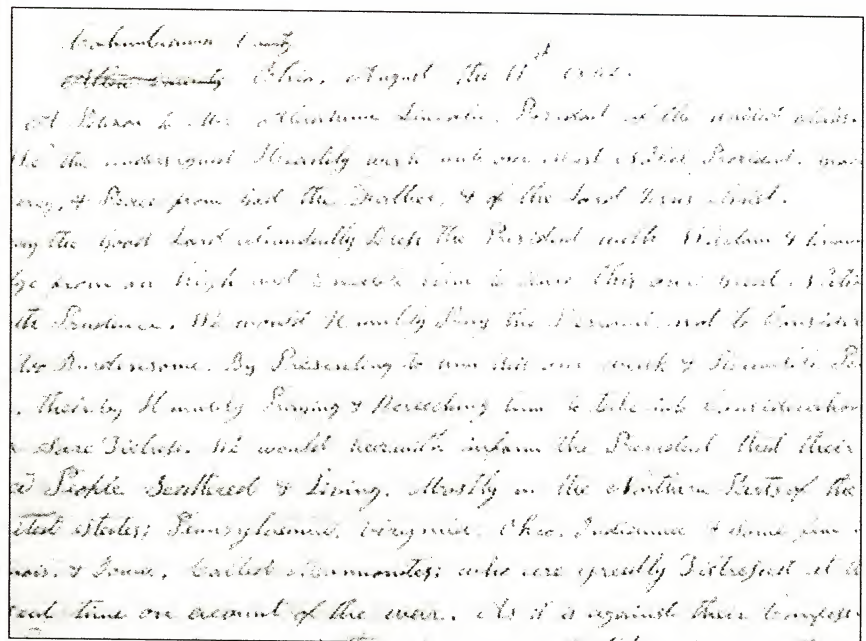 Columbianna County
Allen County Ohio, August the 11th
A Petition to Mr Abraham Lincoln. President of the united states.
We the undersigned Humbly wish unto our Most Noble President.
ercy, & Peace from God the Father, & of the Lord Jesus Christ.
ay the Good Lord abundantly Bless the President with Wisdom & know
ge from on high and him to our great Natio
ith Prudence. We would Humbly Pray the Personal not to Consider
Burdensome. By Presenting to him this our weak & Pe
Theirby Humbly Praying & Beseeching him to take into Consideration
Sore Distress. We would herewith inform the President that their
a People Scattered & Living. Mostly in the Northern Parts of the
ited states; Pennsylvania, Virginia, Ohio, Indianna & some few
inois, & Iowa, Called Mennonites; who are greatly Distressed at
sent time on account of the war. As it is against their